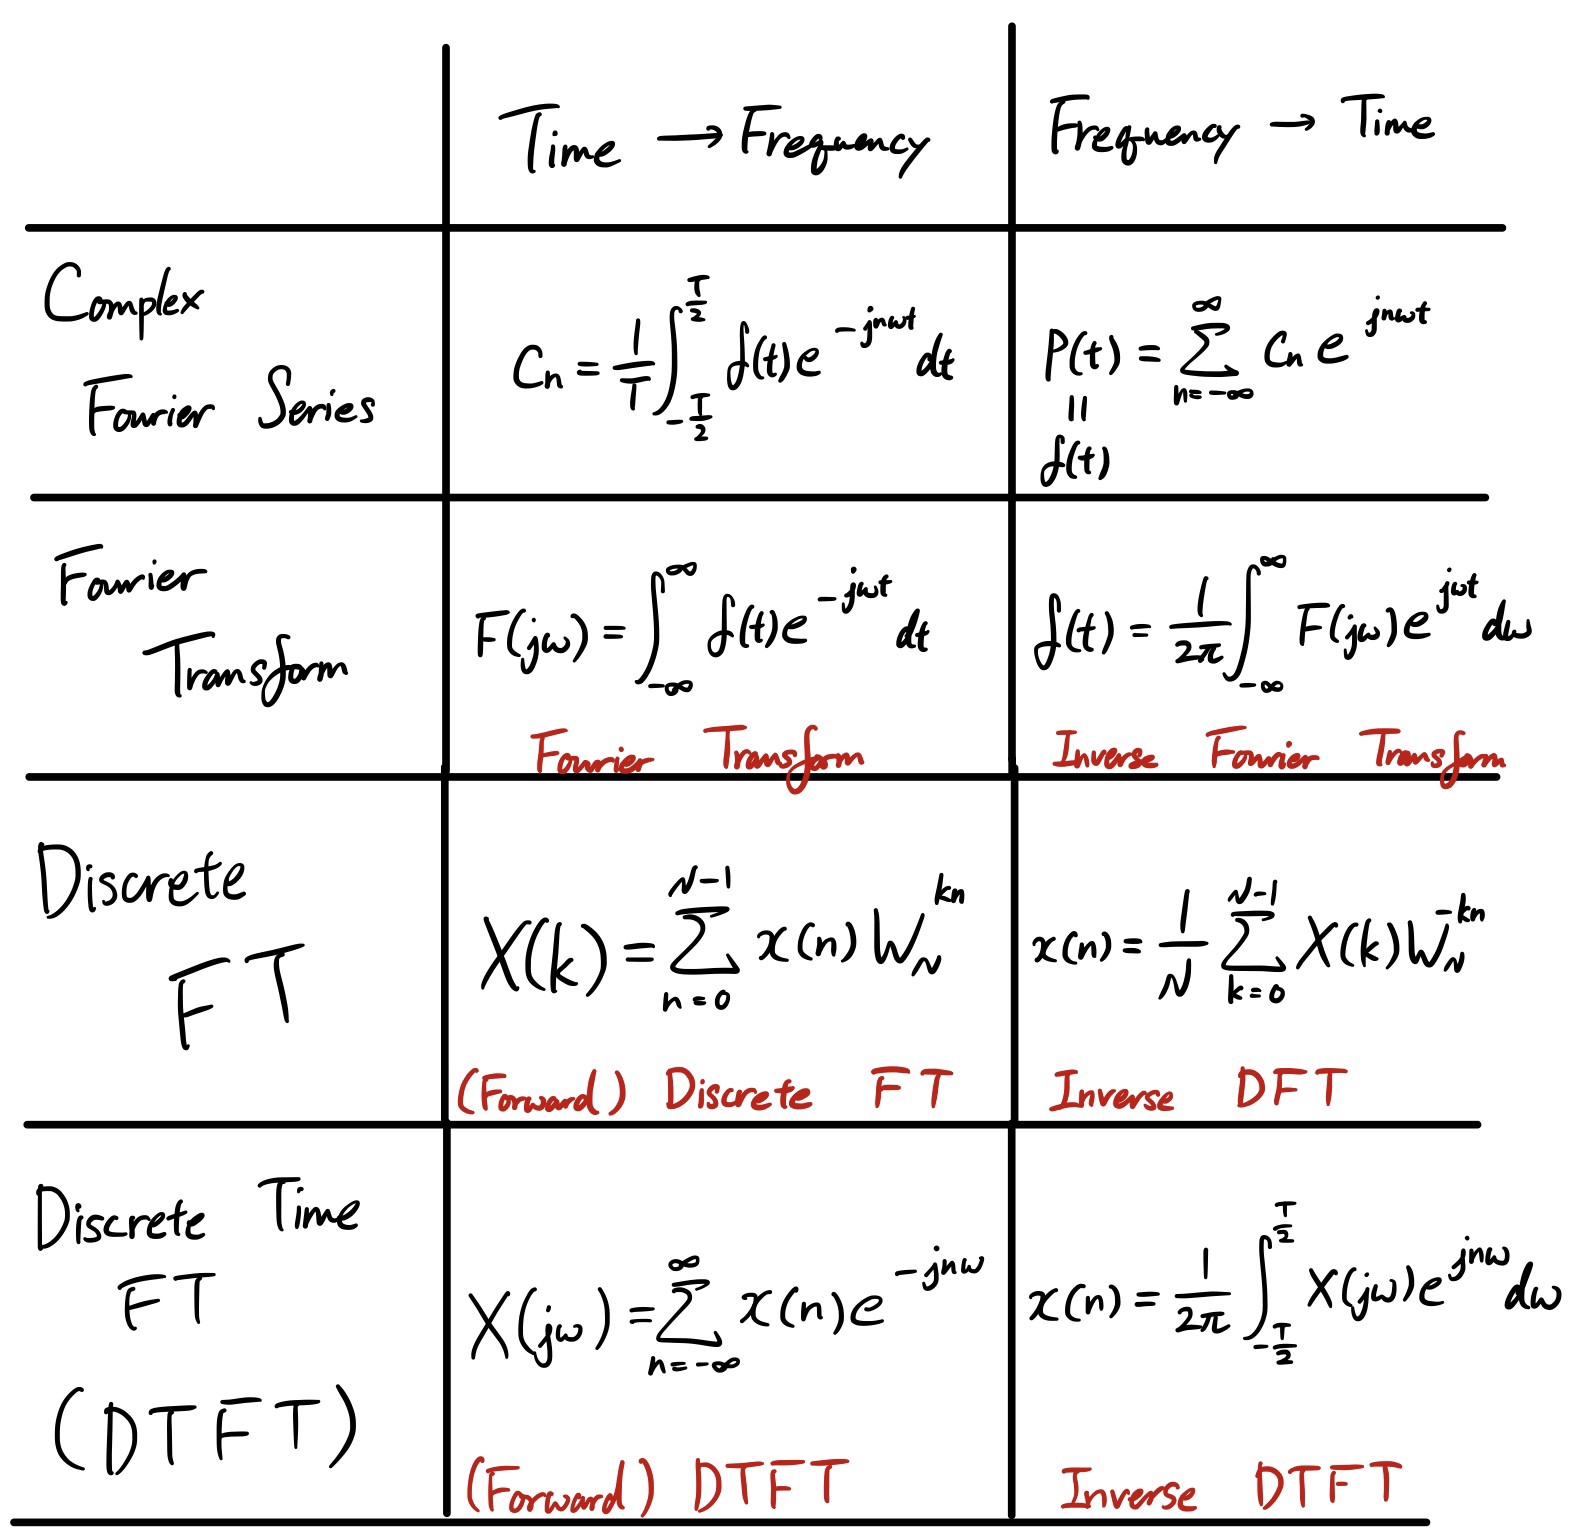 Time → Frequency
Frequency → Time
Complex
Fourier Series
Cn = 1/T ∫_{-T/2}^{T/2} f(t)e^{-jnωt} dt
P(t) = ∑_{n=-∞}^{∞} Cn e^{jnωt}
=
f(t)
Fourier
Transform
F(jω) = ∫_{-∞}^{∞} f(t)e^{-jωt} dt
Fourier Transform
f(t) = 1/2π ∫_{-∞}^{∞} F(jω)e^{jωt} dω
Inverse Fourier Transform
Discrete
FT
X(k) = ∑_{n=0}^{N-1} x(n) W_N^{kn}
(Forward) Discrete FT
x(n) = 1/N ∑_{k=0}^{N-1} X(k) W_N^{-kn}
Inverse DFT
Discrete Time
FT
(DTFT)
X(jω) = ∑_{n=-∞}^{∞} x(n)e^{-jnω}
(Forward) DTFT
x(n) = 1/2π ∫_{-T/2}^{T/2} X(jω)e^{jnω} dω
Inverse DTFT